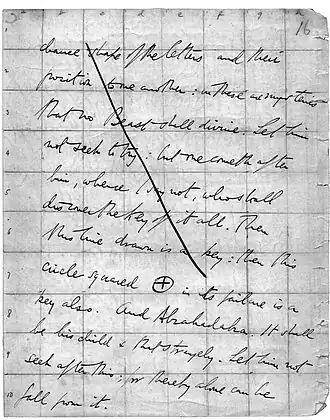 a b c d e f g h 16
1 chance shape of the letters and their
2 position to one another: in these are mysteries
3 that no Beast shall divine. Let him
4 not seek to try: but one cometh after
5 him, whence I say not, who shall
discover the Key of it all. Then
6 this line drawn is a key: then this
7 circle squared ⊕ in its failure is a
8 key also. And Abrahadabra. It shall
be his child & that strangely. Let him not
9 seek after this; for thereby alone can he
10 fall from it.